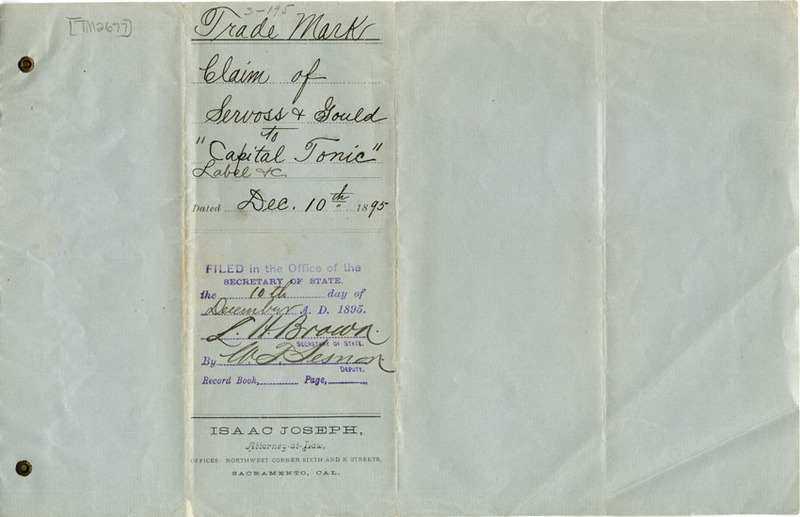 [TM2677]
3-195
Trade Mark
Claim of
Servoss & Gould
to
"Capital Tonic"
Label &c
Dated Dec. 10th 1895
FILED in the Office of the
SECRETARY OF STATE.
the 10th day of
December A. D. 1895.
L. H. Brown.
SECRETARY OF STATE.
By
DEPUTY.
Record Book, Page,
ISAAC JOSEPH,
Attorney-at-Law,
OFFICES: NORTHWEST CORNER SIXTH AND K STREETS,
SACRAMENTO, CAL.